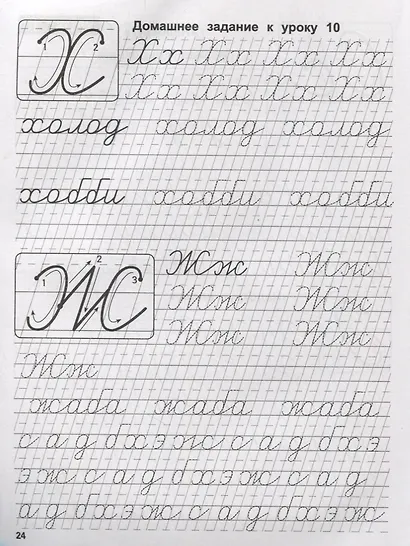 Домашнее задание к уроку 10
1 2
Хх Хх Хх Хх Хх
Хх Хх Хх Хх Хх
холод холод холод
хобби хобби хобби
1 2 3
Жж Жж
Жж Жж
Жж Жж
Жж
жаба жаба жаба
с а д б х э ж с а д б х э
э ж с а д б х э ж с а д
а д б х э ж с а д б х э ж
24